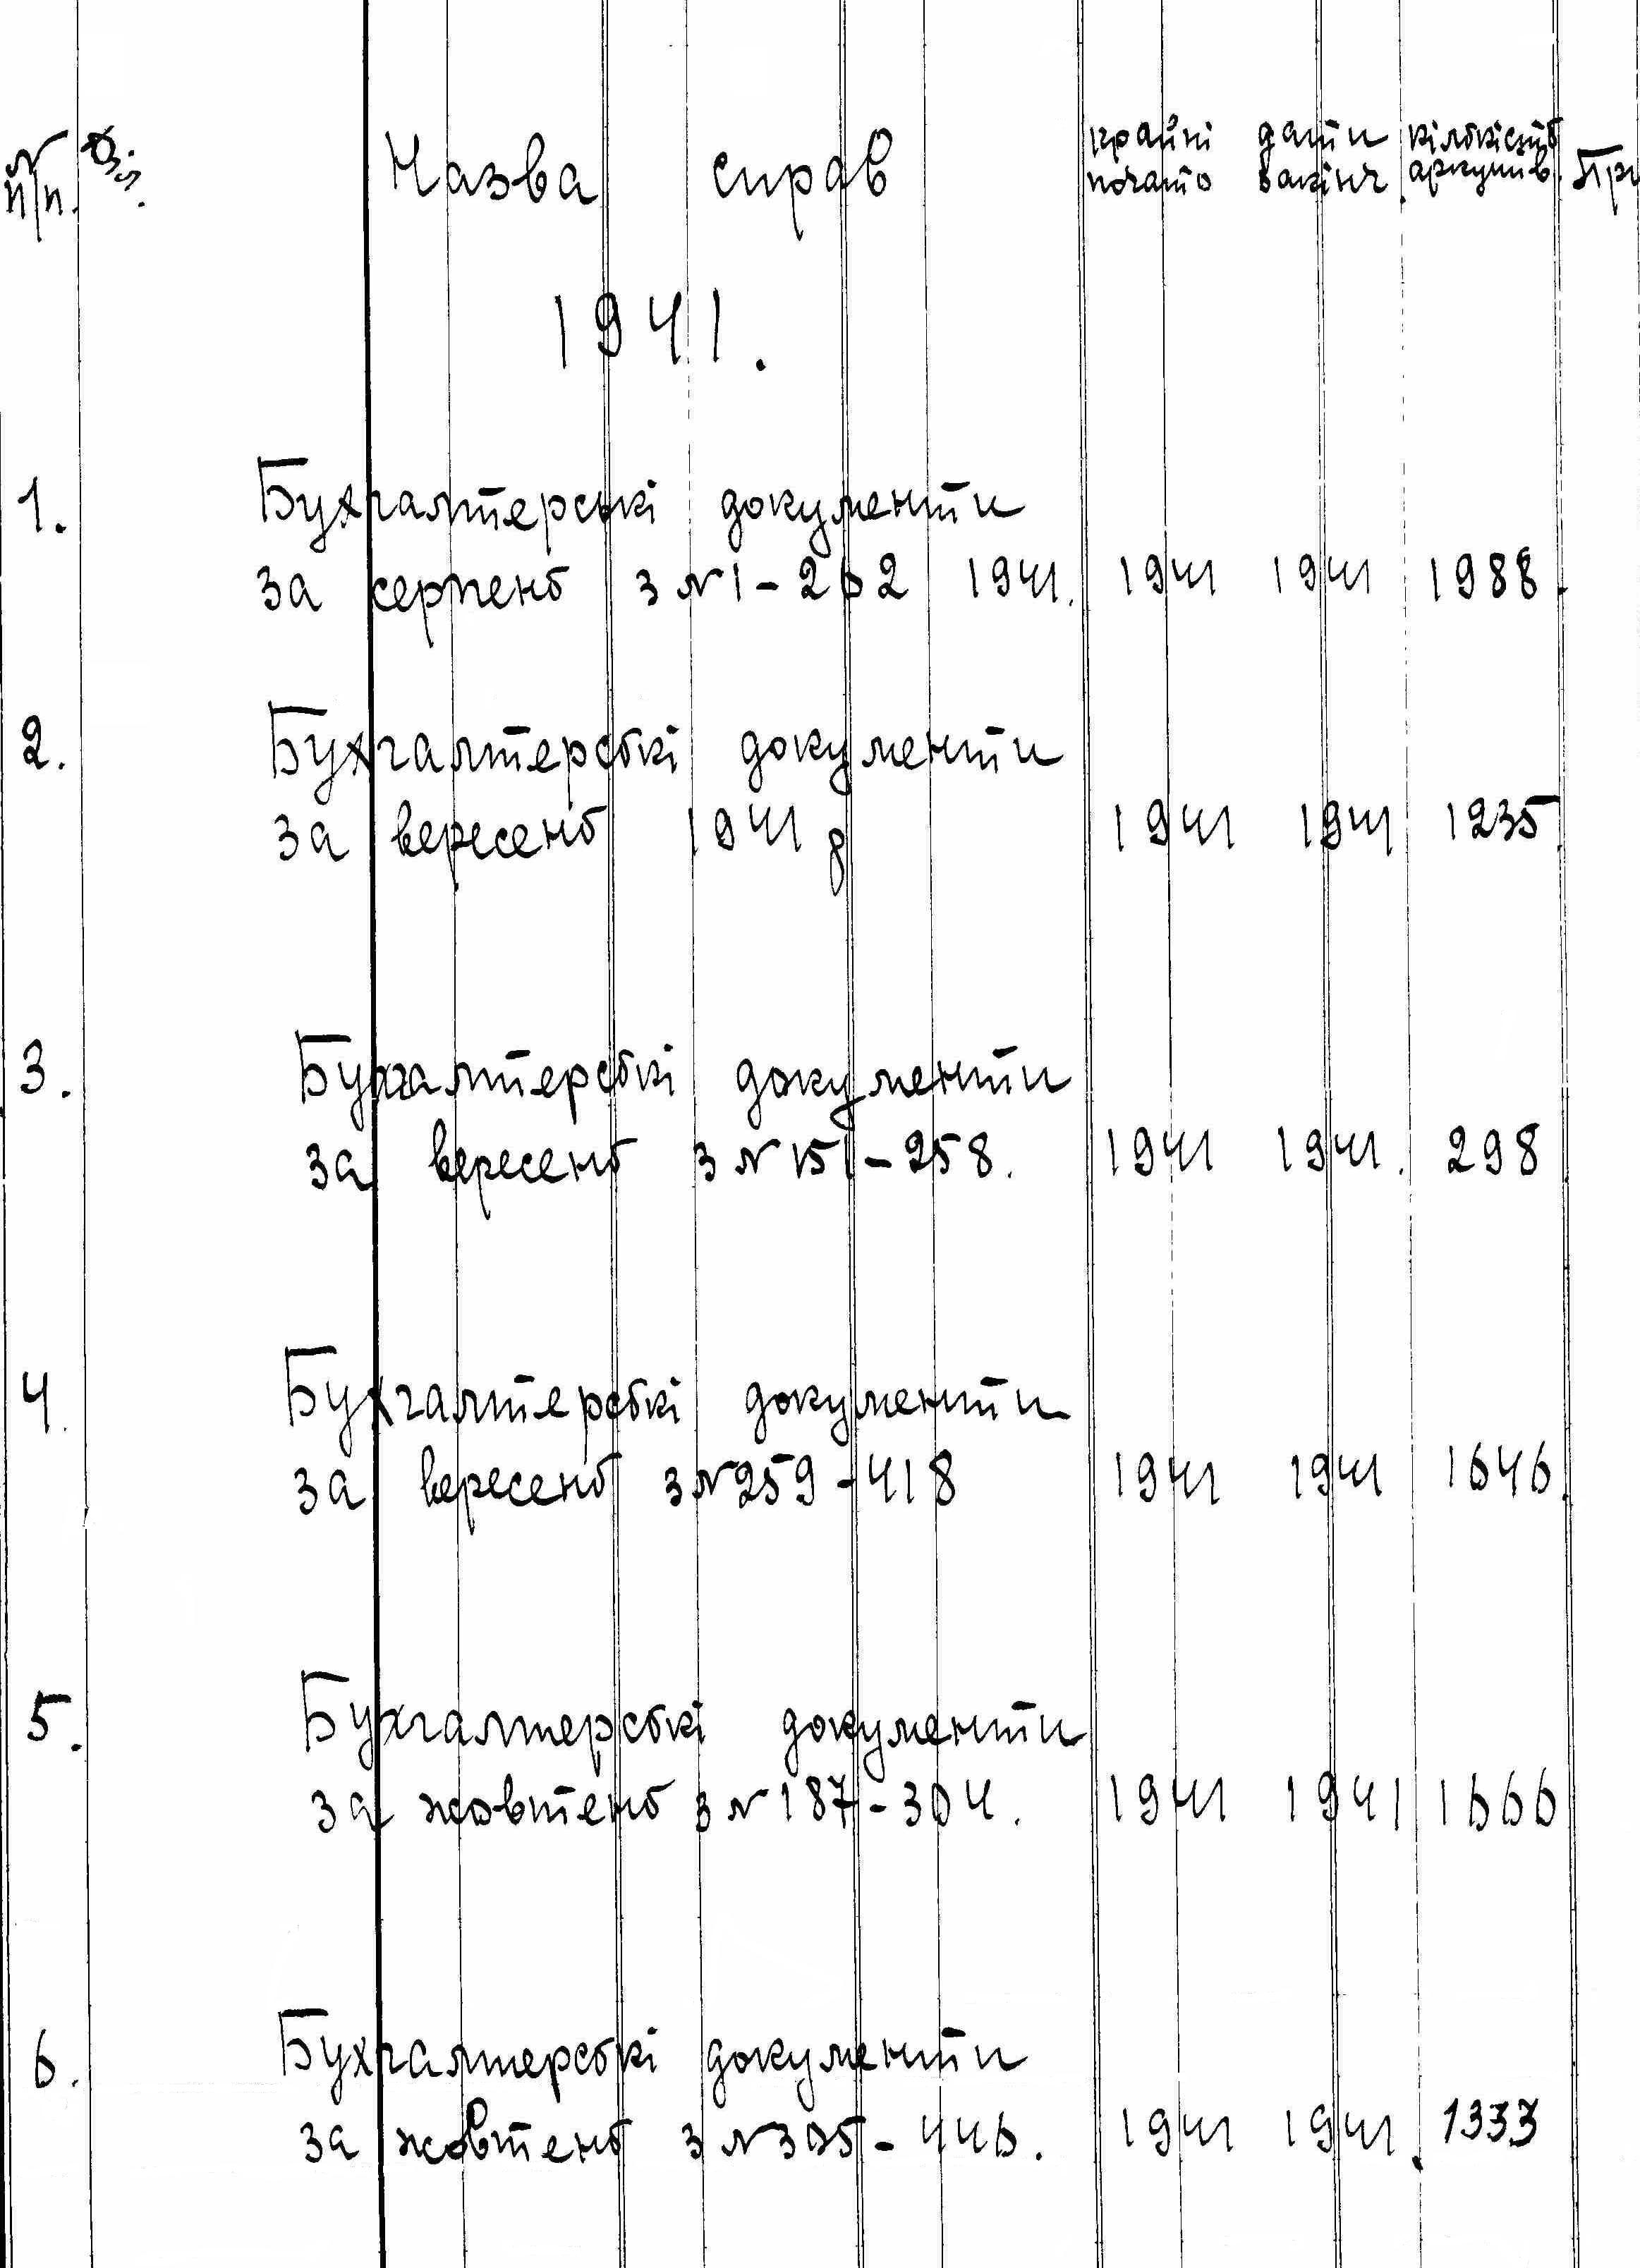 № п/п. Назва справ крайні дати кількість
почато закінч. аркушів. При
1941.
1. Бухгалтерські документи
за серпень з №1-262 1941. 1941 1941 1988.
2. Бухгалтерські документи
за вересень 1941 р 1941 1941 1235.
3. Бухгалтерські документи
за вересень з №151-258. 1941 1941. 298
4. Бухгалтерські документи
за вересень з №259-418 1941 1941 1646.
5. Бухгалтерські документи
за жовтень з №187-304. 1941 1941 1666
6. Бухгалтерські документи
за жовтень з №305-446. 1941 1941. 1333